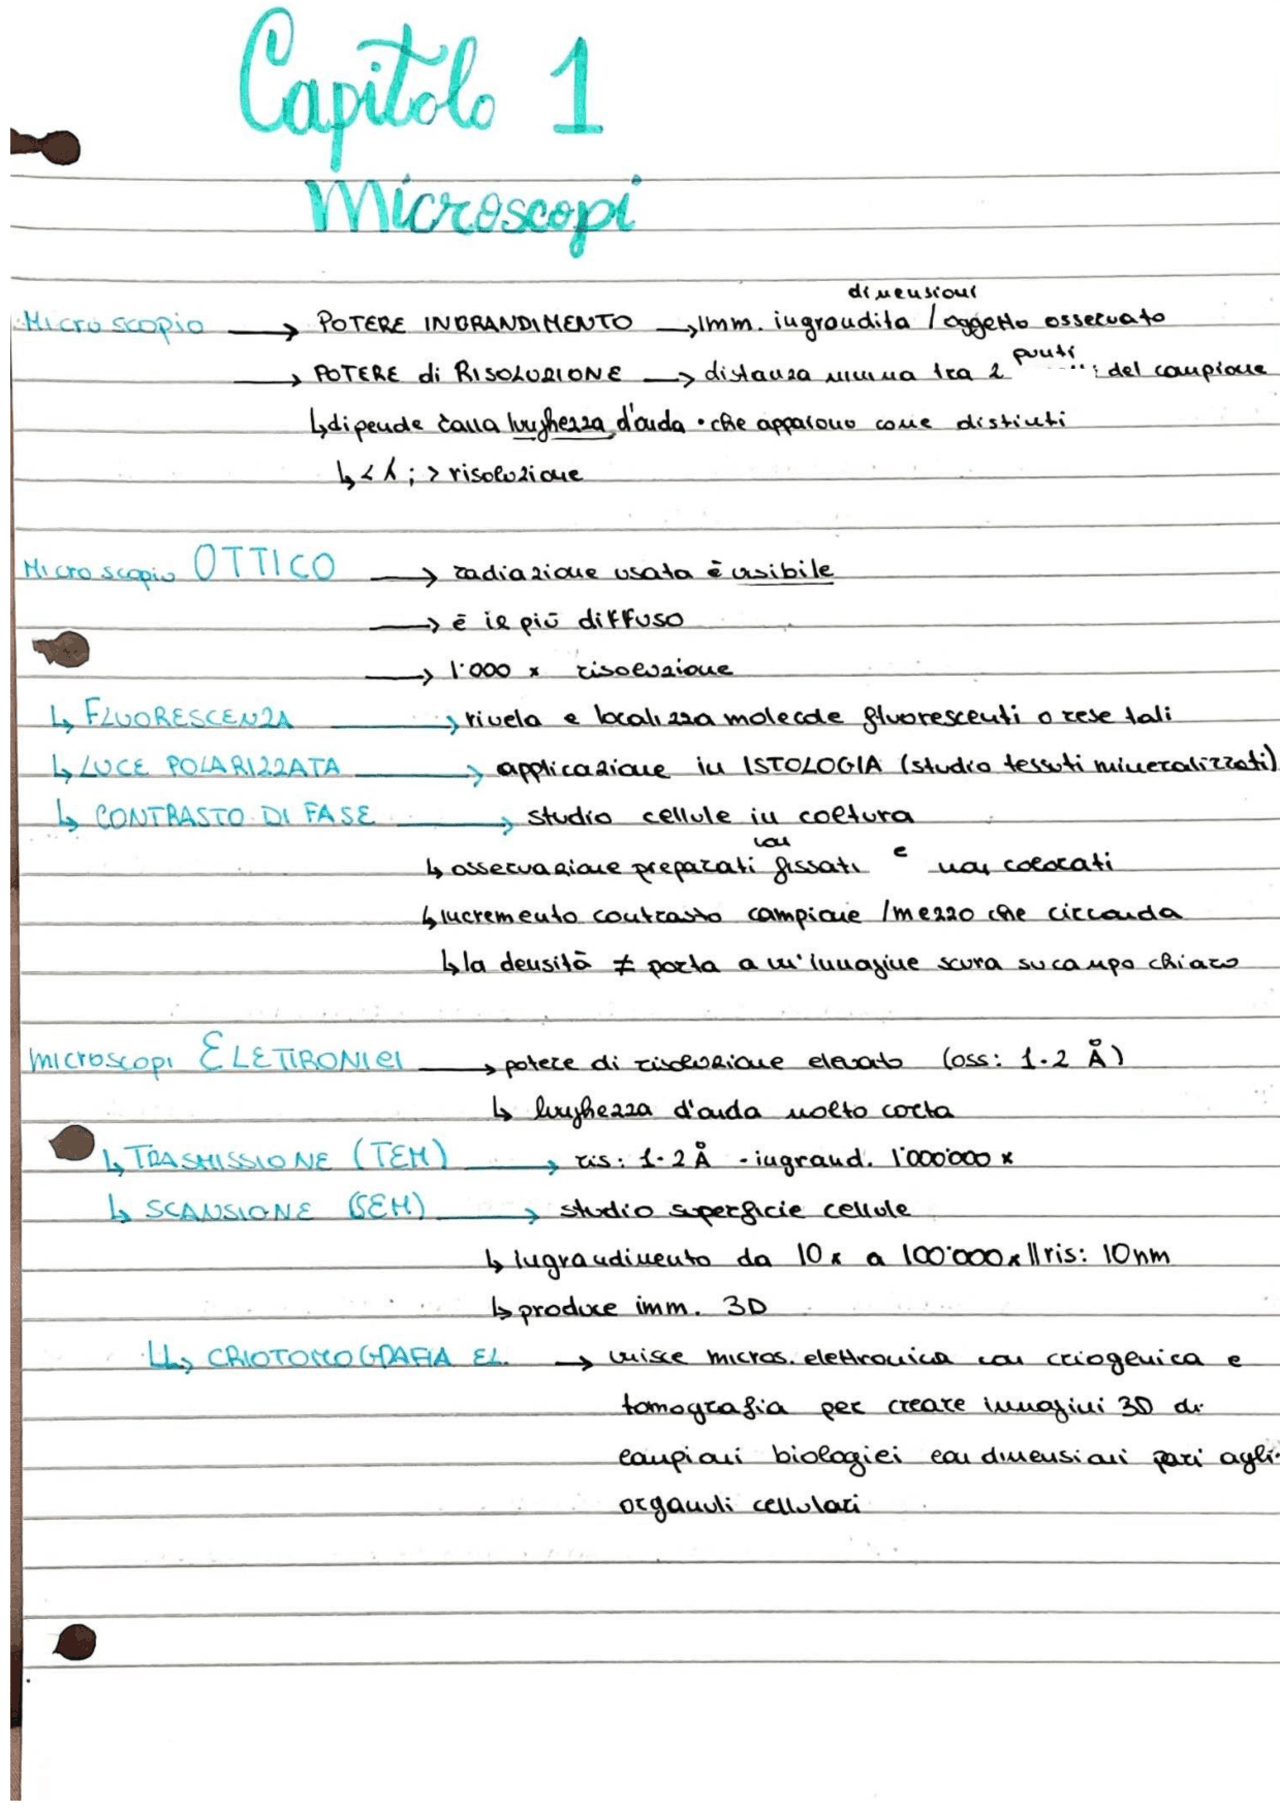 Capitolo 1
Microscopi
dimensioni
Microscopio → POTERE INGRANDIMENTO → Imm. ingrandita / oggetto osservato
punti
→ POTERE di RISOLUZIONE → distanza minima tra 2 del campione
↳ dipende dalla lunghezza d'onda · che appaiono come distinti
↳ < λ ; > risoluzione
Microscopio OTTICO → radiazione usata è visibile
→ è il più diffuso
→ 1'000 x risoluzione
↳ FLUORESCENZA → rivela e localizza molecole fluorescenti o rese tali
↳ LUCE POLARIZZATA → applicazione in ISTOLOGIA (studio tessuti mineralizzati)
↳ CONTRASTO DI FASE → studio cellule in coltura
non
↳ osservazione preparati fissati e non colorati
↳ incremento contrasto campione / mezzo che circonda
↳ la densità ≠ porta a un'immagine scura su campo chiaro
microscopi ELETTRONICI → potere di risoluzione elevato (oss: 1-2 Å)
↳ lunghezza d'onda molto corta
↳ TRASMISSIONE (TEM) → ris: 1-2 Å - ingrand. 1'000'000 x
↳ SCANSIONE (SEM) → studio superficie cellule
↳ Ingrandimento da 10 x a 100'000 x || ris: 10 nm
↳ produce imm. 3D
↳ CRIOTOMOGRAFIA EL. → unisce micros. elettronica con criogenica e
tomografia per creare immagini 3D di
campioni biologici con dimensioni pari agli
organuli cellulari